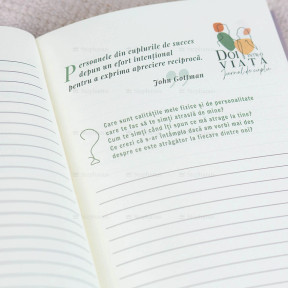 Persoanele din cuplurile de succes
depun un efort intenționat
pentru a exprima apreciere reciprocă.
John Gottman
Doi
VIAȚĂ
Jurnal de cuplu
Care sunt calitățile mele fizice și de personalitate
care te fac să te simți atrasă de mine?
Cum te simți când îți spun ce mă atrage la tine?
Ce crezi că s-ar întâmpla dacă am vorbi mai des
despre ce este atrăgător la fiecare dintre noi?